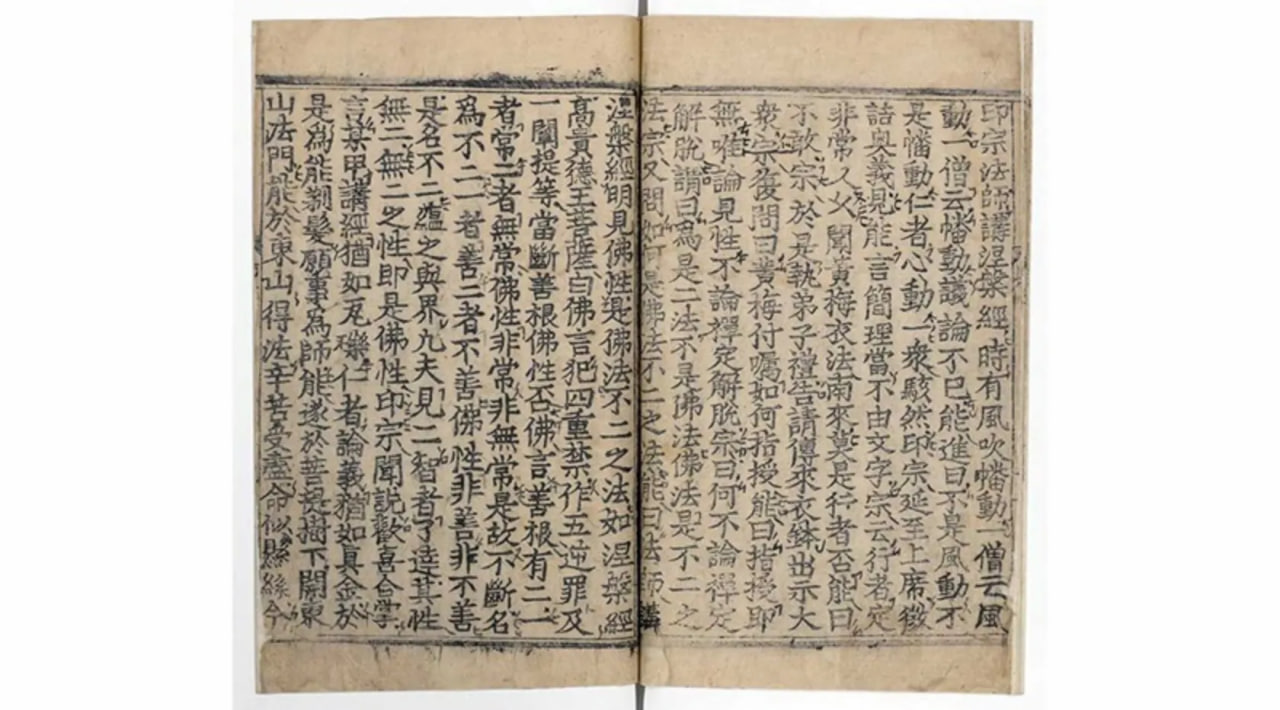 印宗法師講涅槃經時有風吹幡動一僧云風
動一僧云幡動議論不已能進曰不是風動不
是幡動仁者心動一衆駭然印宗延至上席徵
詰奧義見能言簡理當不由文字宗云行者定
非常人久聞黃梅衣法南來莫是行者否能曰
不敢宗於是執弟子禮告請傳來衣鉢出示大
衆宗復問曰黃梅付囑如何指授能曰指授即
無唯論見性不論禪定解脫宗曰何不論禪定
解脫謂曰爲是二法不是佛法佛法是不二之
法宗又問如何是佛法不二之法能曰法師講
涅槃經明見佛性是佛法不二之法如涅槃經
高貴德王菩薩白佛言犯四重禁作五逆罪及
一闡提等當斷善根佛性否佛言善根有二一
者常二者無常佛性非常非無常是故不斷名
爲不二一者善二者不善佛性非善非不善
是名不二蘊之與界凡夫見二智者了達其性
無二無二之性即是佛性印宗聞說歡喜合掌
言某甲講經猶如瓦礫仁者論義猶如眞金於
是爲能剃髮願事爲師能遂於菩提樹下開東
山法門能於東山得法辛苦受盡命似懸絲今